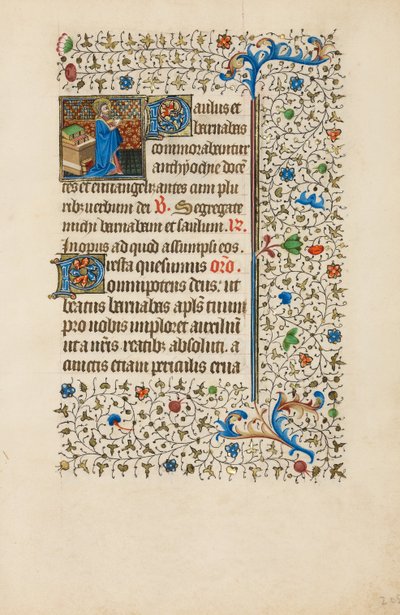 Paulus et
barnabas
commorabantur
anthyochie docē
tes et euuangelizantes cum plu
ribz uerbum dei V. Segregate
michi barnabam et saulum. R.
In opus ad quod assumpsi eos.
Presta quesumus oro.
omnipotens deus: ut
beatus barnabas apls tuum
pro nobis imploret auxiliū
ut a nris reatibz absoluti. a
cunctis etiam periculis erua